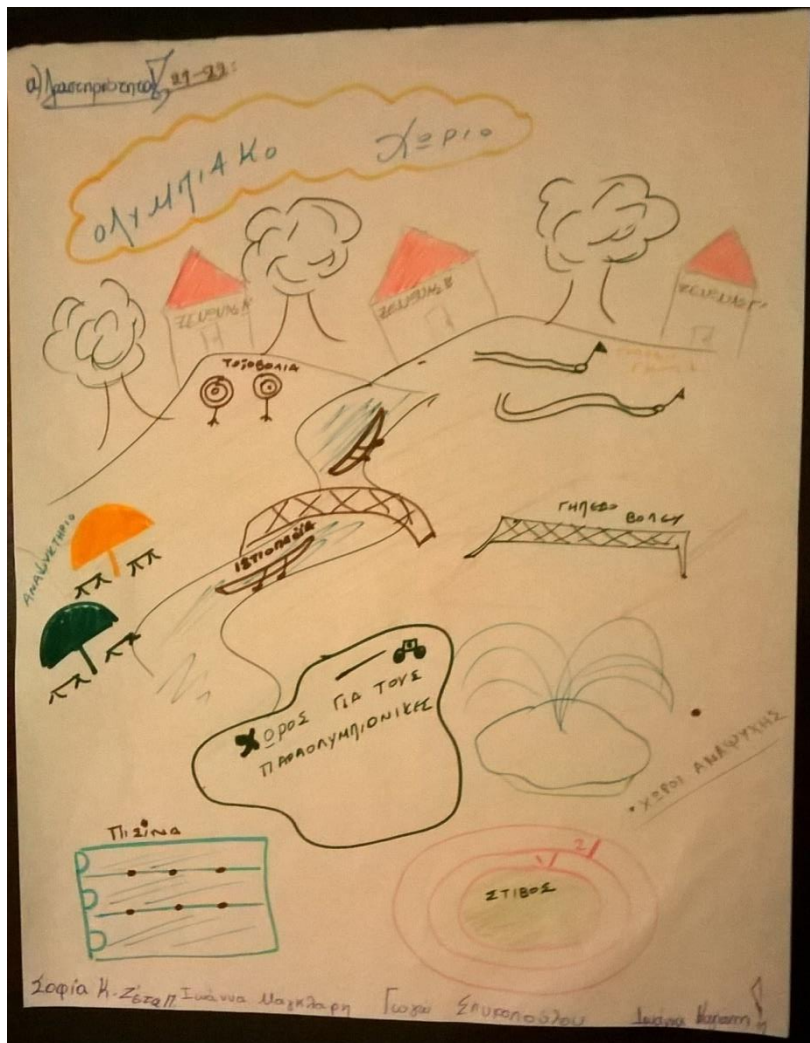 α) Δραστηριότητα 21-22:
ΟΛΥΜΠΙΑΚΟ ΧΩΡΙΟ
ΞΕΝΩΝΑΣ Α'
ΞΕΝΩΝΑΣ Β'
ΞΕΝΩΝΑΣ Γ'
ΤΟΞΟΒΟΛΙΑ
ΓΗΠΕΔΟ
ΒΟΛΕΥ
ΙΣΤΙΟΠΛΟΪΑ
ΧΩΡΟΣ ΓΙΑ ΤΟΥΣ
ΠΑΡΑΟΛΥΜΠΙΟΝΙΚΕΣ
• ΧΩΡΟΙ ΑΝΑΨΥΧΗΣ
ΠΙΣΙΝΑ
1 2
ΣΤΙΒΟΣ
Σοφία Κ. Ιωάννα Μαγκλαρη Γωγώ Σπυροπούλου Ιωάννα